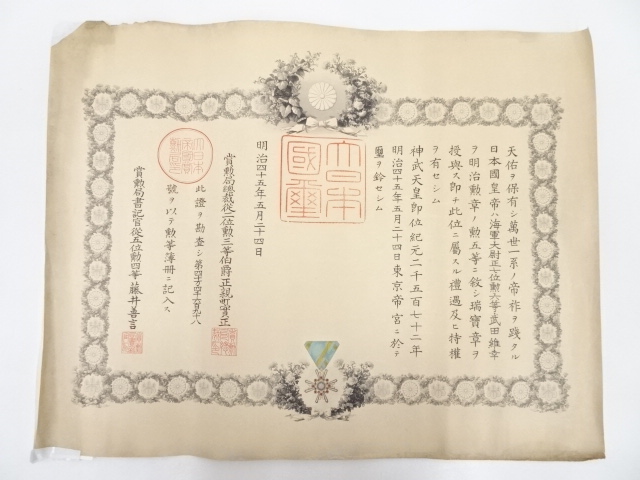 天佑ヲ保有シ萬世一系ノ帝祚ヲ踐タル
日本國皇帝ハ海軍大尉正七位勲六等武田維幸
ヲ明治勲章ノ勲五等ニ敘シ瑞寶章ヲ
授與ス即チ此位ニ屬スル禮遇及ヒ特權
ヲ有セシム
神武天皇即位紀元二千五百七十二年
明治四十五年五月二十四日東京帝宮ニ於テ
璽ヲ鈐セシム
大日本國璽
明治四十五年五月二十四日
賞勲局總裁從二位勲三等伯爵正親町實正
此證ヲ勘査シ第
號ヲ以テ勲等簿冊ニ記入ス
賞勲局書記官從五位勲四等藤井善言